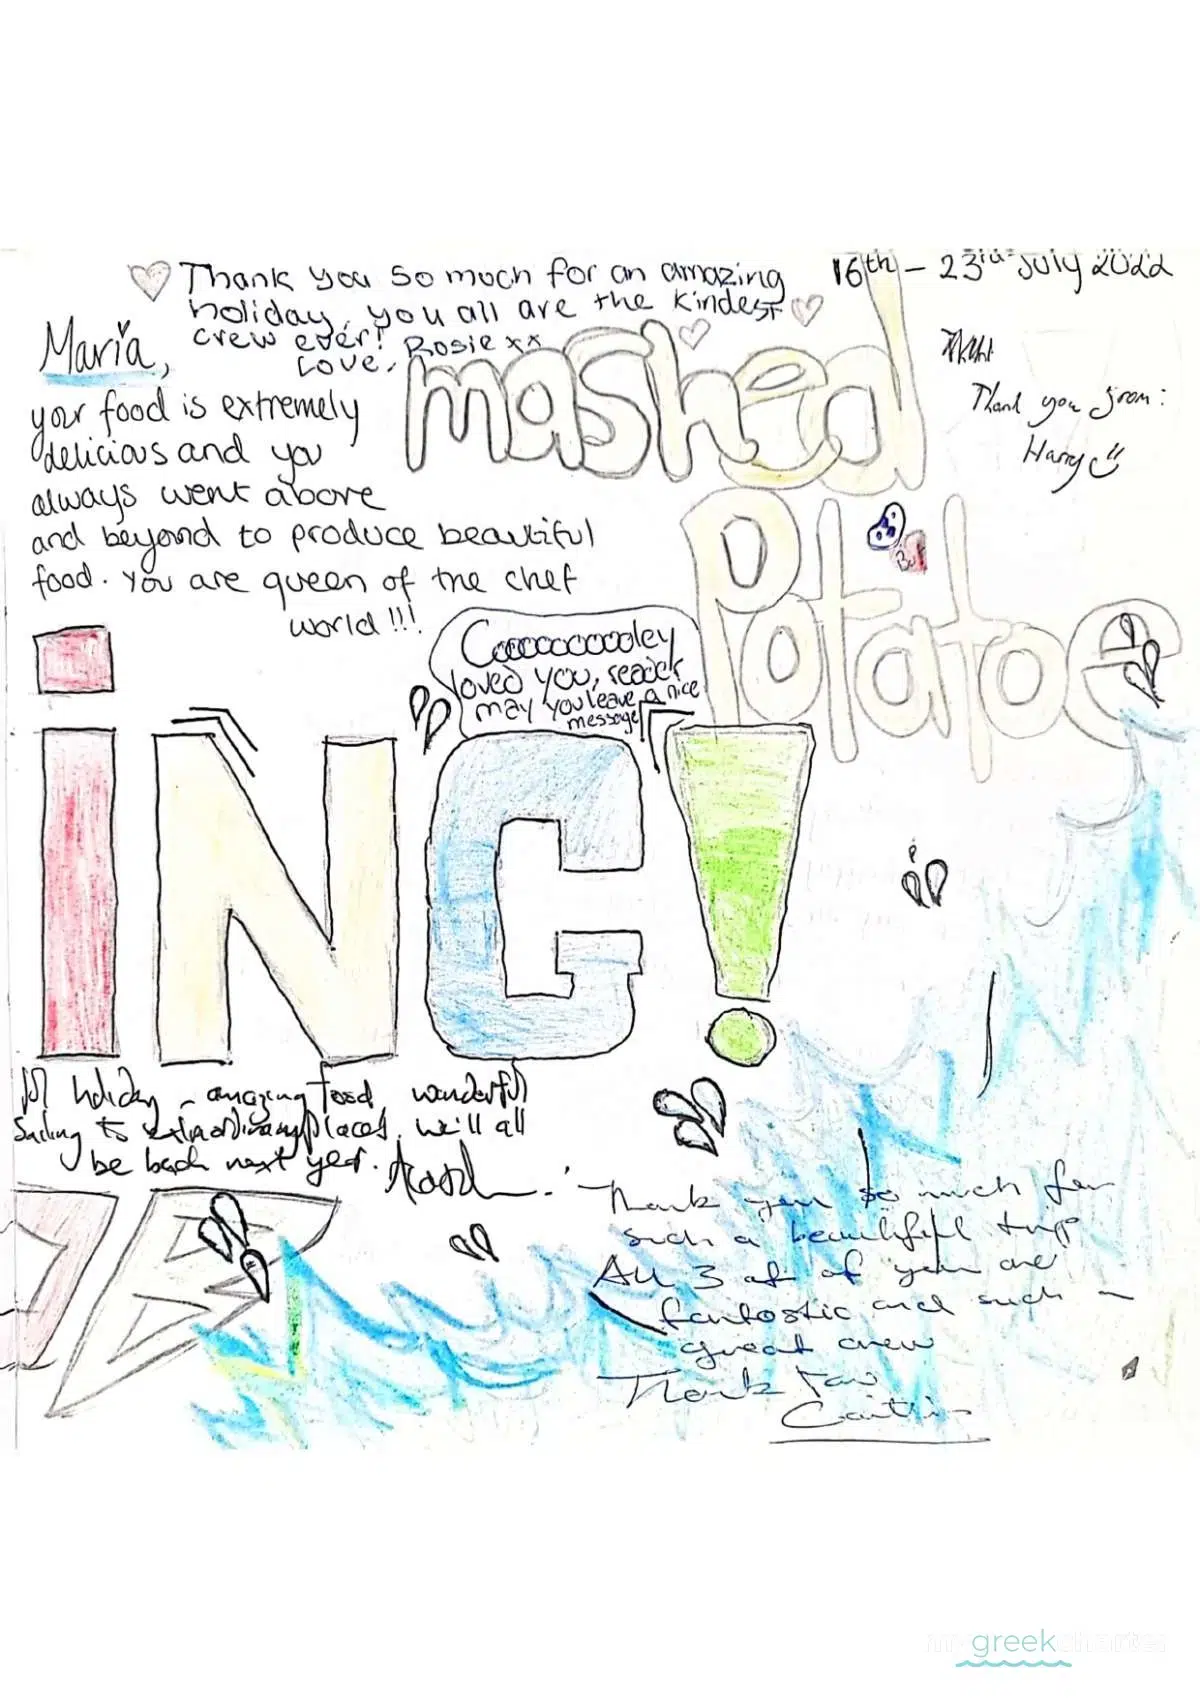 Thank you so much for an amazing
holiday, you all are the kindest
crew ever!
Love, Rosie xx
16th – 23rd July 2022
Maria,
your food is extremely
delicious and you
always went above
and beyond to produce beautiful
food. You are queen of the chef
world!!!
mashed
Potatoe
Thank you from:
Harry
Coooooooooley
loved you, reader
may you leave a nice
message
iNG!
holiday – amazing food wonderful
Sailing to extraordinary places. We'll all
be back next year.
Thank you so much for
such a beautiful trip
All 3 of you are
fantastic and such a
great crew
Thank you
Caitlin
my greek charter